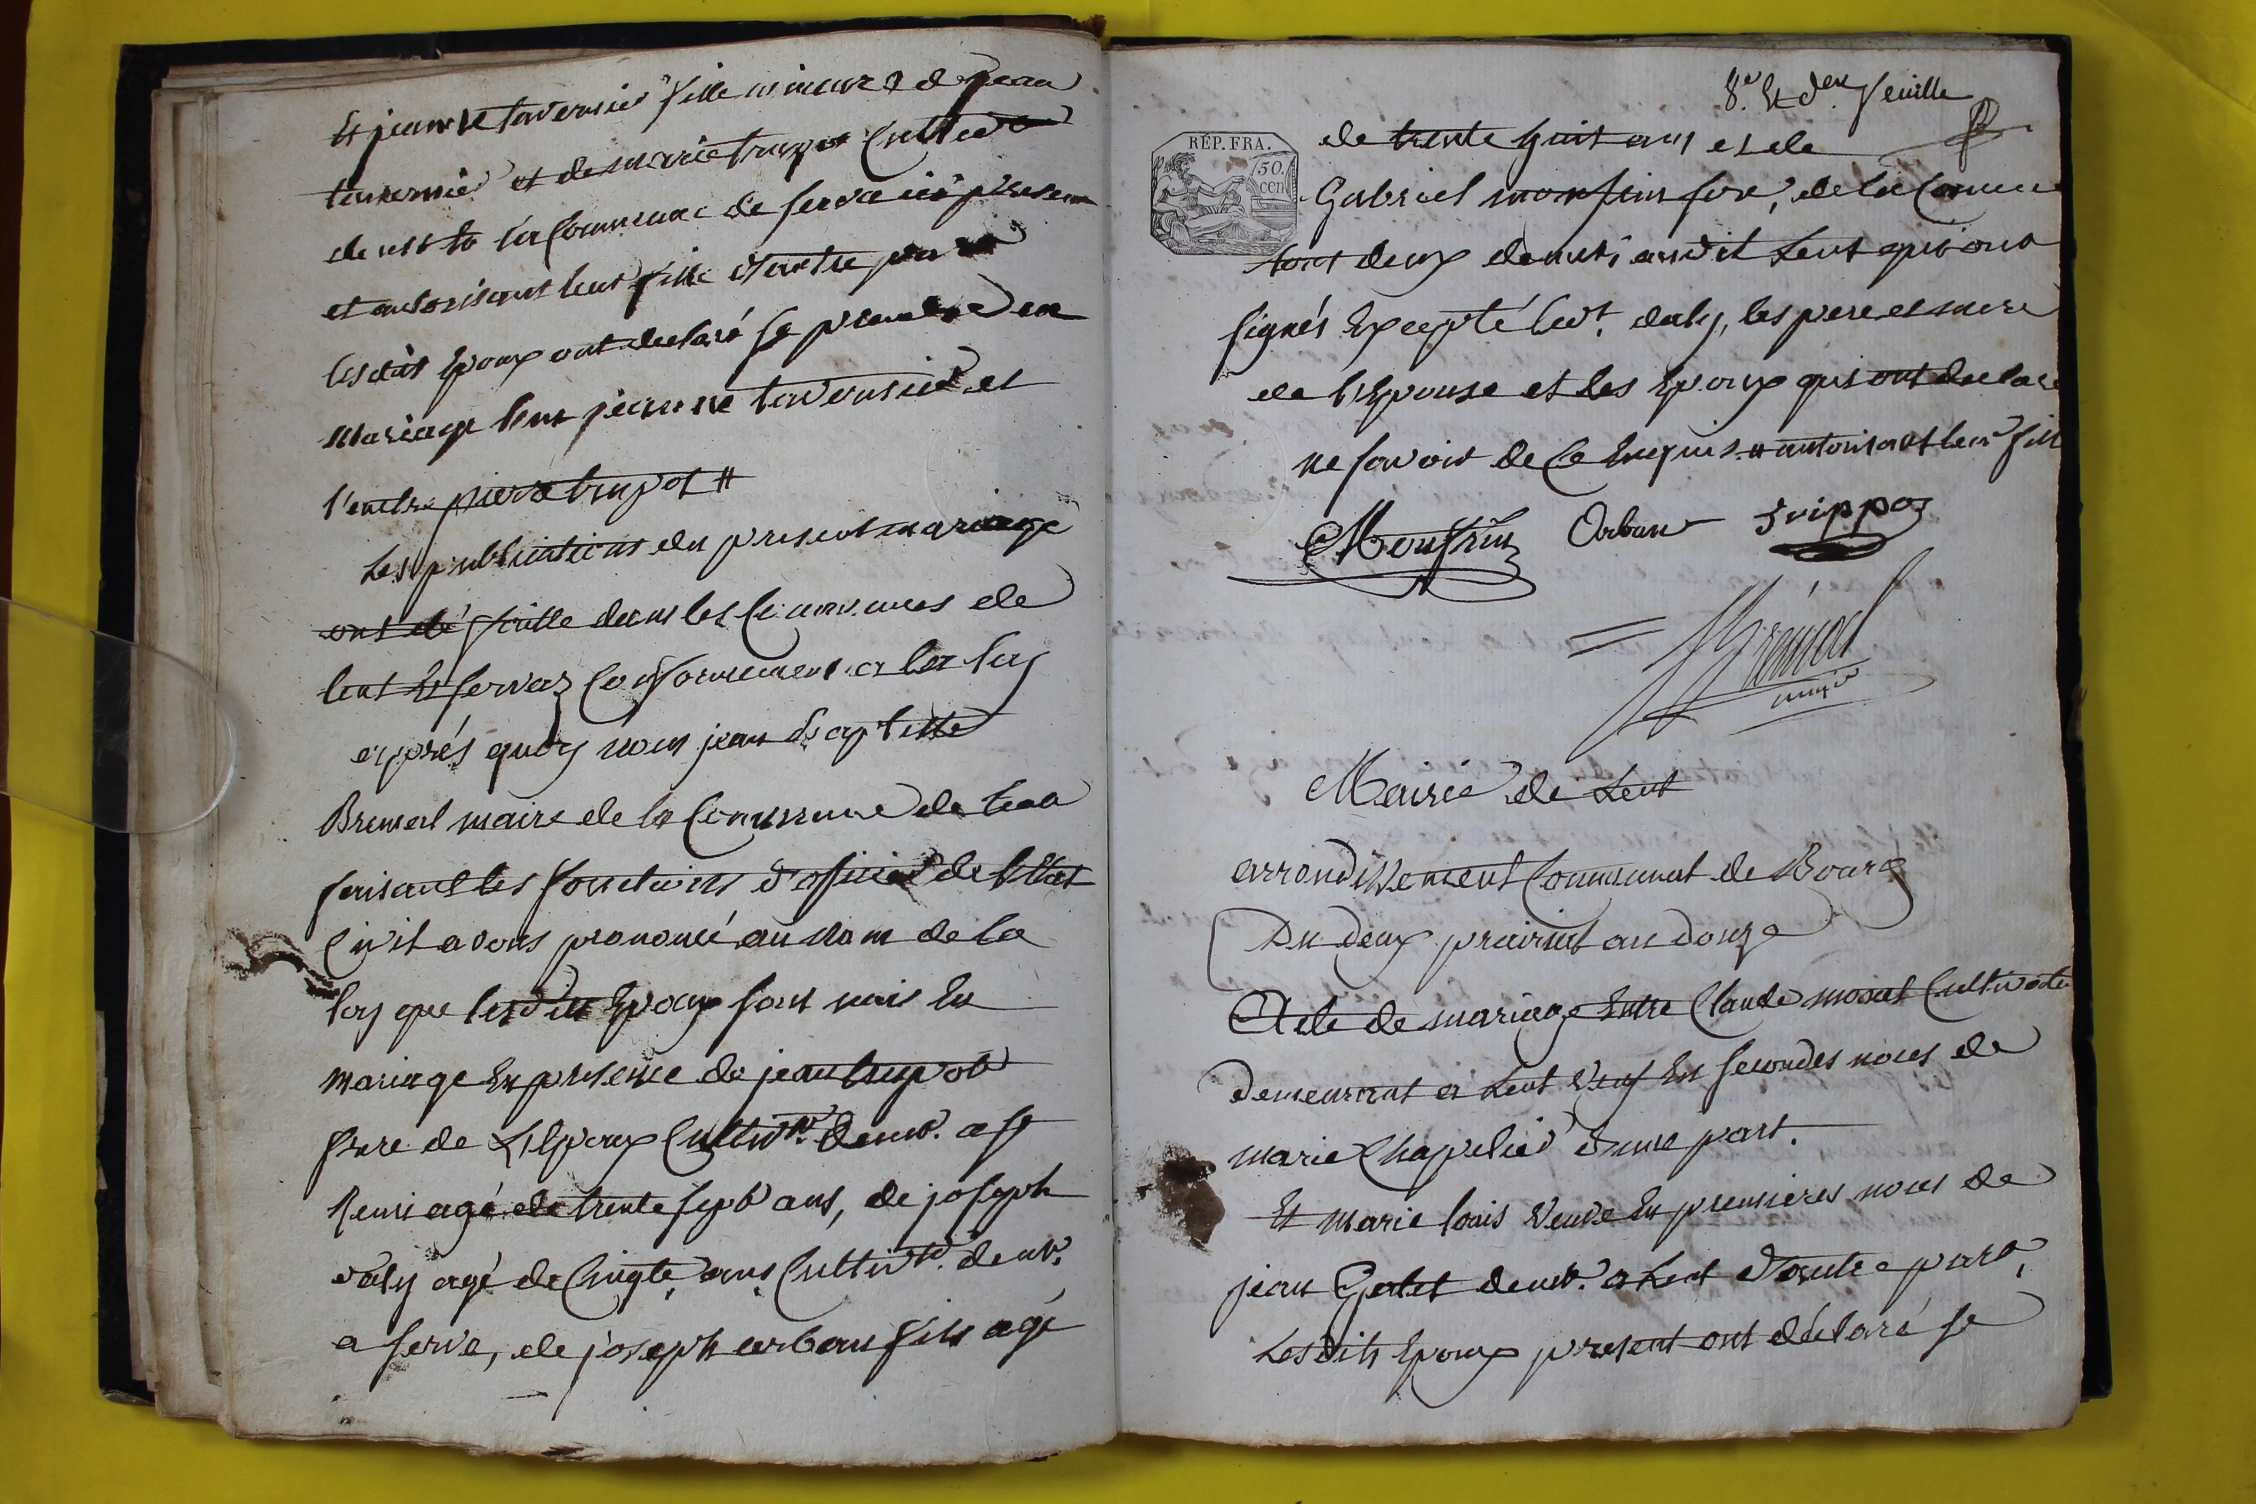 Et jeanne tavernier fille mineure de jean
tavernier et de marie trupot Cultivat
demt. a la Commune de servas ici present
et autorisant leur fille d'autre part
lesdits Epoux ont declaré se prendre en
mariage l'une jeanne tavernier et
l'autre pierre trupot #
Les publications du present mariage
ont été faitte dans les Communes de
lent et servaz Conformement a la loy
après quoy nous jean Baptiste
Bremod maire de la Commune de lent
faisant les fonctions d'officier de l'Etat
Civil avons prononcé au nom de la
loy que lesdits Epoux sont unis En
mariage En presence de jean trupot
frere de L'Epoux Cultivr. demt. a st
Remi agé de trente sept ans, de joseph
daly agé de Cinqte ans Cultivr. demt.
a serve, de joseph orban fils agé
8e. Et dere feuille
RÉP. FRA.
50.
cen
de trente huit ans et de
Gabriel monfrin fox, de la Comune
tous deux demts. audit Lent qui ont
signés Excepté ledt. daly, les pere et mere
de l'Epouse et les Epoux qui ont declaré
ne savoir de Ce Enquis # autorisant leur fille
Monfrin Orban Trippoz
Brémod
maire
Mairie de Lent
arrondissement Communal de Bourg
Du deux prairial an douze
Acte de mariage Entre Claude morat Cultivateur
demeurant a Lent Veuf En secondes noces de
marie Chapelier d'une part.
Et marie louis Veuve En premieres noces de
jean Galet demt. a Lent d'autre part,
Lesdits Epoux present ont déclaré se